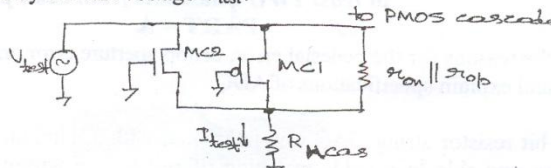 to PMOS cascode
Vtest
MC2
MC1
ron || rop
Itest
RNcas